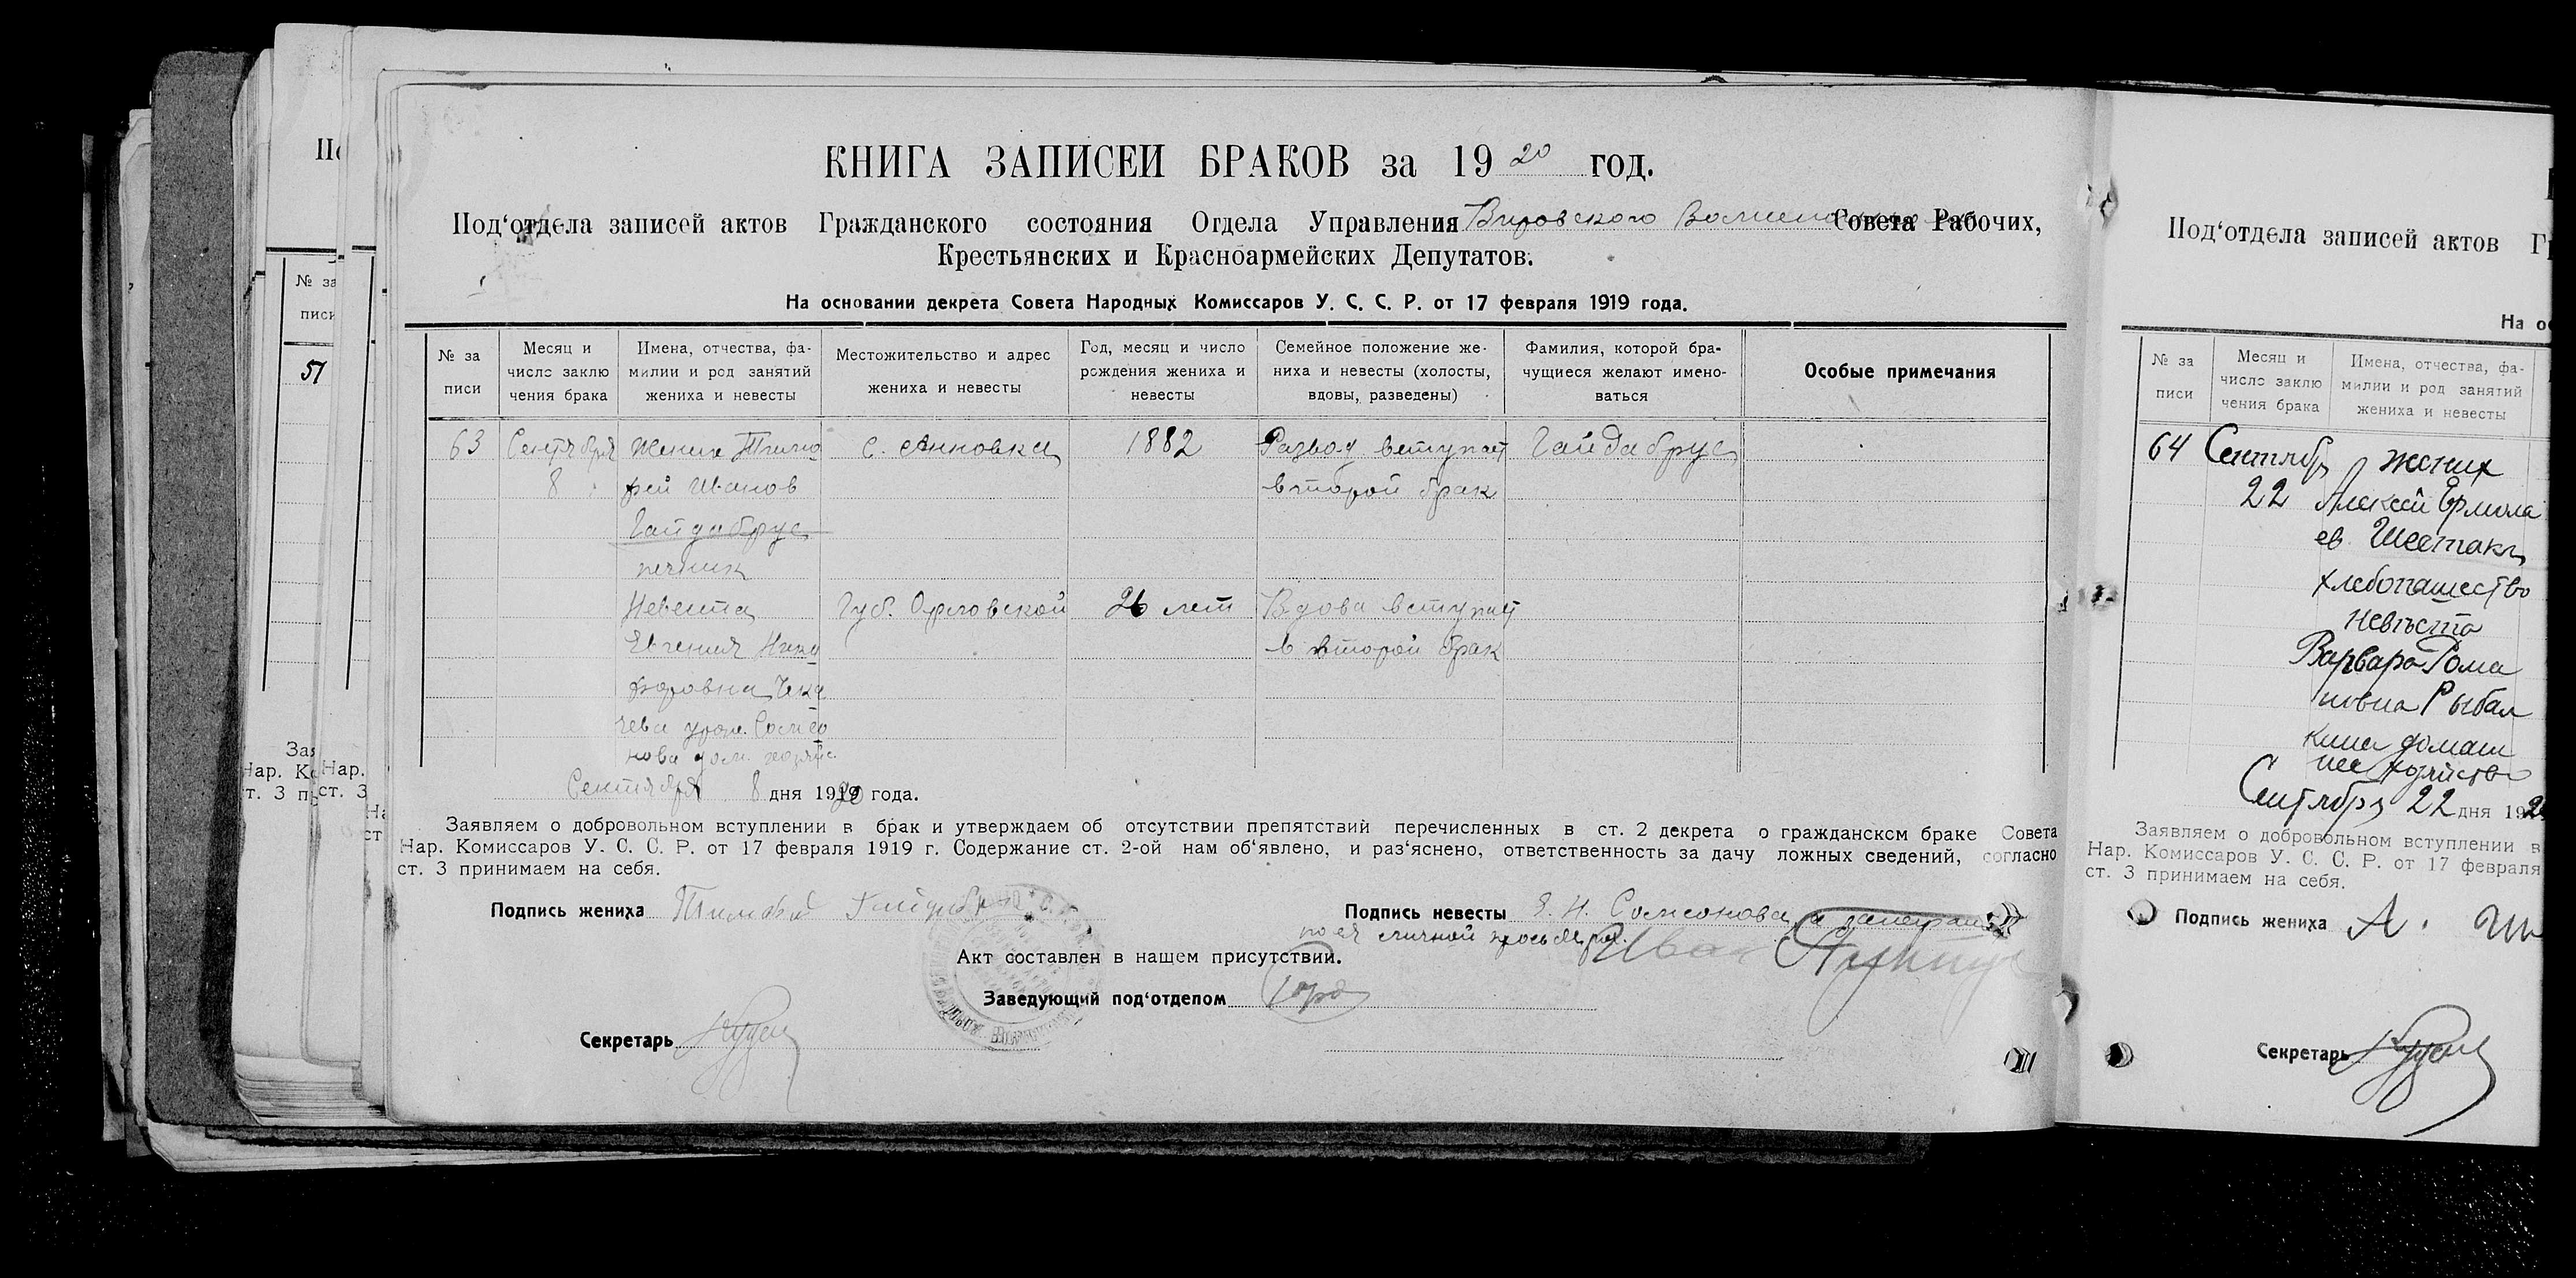 КНИГА ЗАПИСЕЙ БРАКОВ за 1920 год.
Под‘отдела записей актов Гражданского состояния Отдела Управления Вировского Совета Рабочих,
Крестьянских и Красноармейских Депутатов.
На основании декрета Совета Народных Комиссаров У. С. С. Р. от 17 февраля 1919 года.
№ за
писи
Месяц и
число заклю
чения брака
Имена, отчества, фа-
милии и род занятий
жениха и невесты
Местожительство и адрес
жениха и невесты
Год, месяц и число
рождения жениха и
невесты
Семейное положение же-
ниха и невесты (холосты,
вдовы, разведены)
Фамилия, которой бра-
чущиеся желают имено-
ваться
Особые примечания
63
Сентября
8
Жених Тимо
фей Иванов
Гайдабрус
печник
с. Анновка
1882
Развод вступает
второй брак
Гайдабрус
Невеста
Евгения Ники
форовна
чева урож. Самсо
нова дом. хозяйс.
Губ. Орловской
26 лет
Вдова вступает
в второй брак
Сентября 8 дня 1920 года.
Заявляем о добровольном вступлении в брак и утверждаем об отсутствии препятствий перечисленных в ст. 2 декрета о гражданском браке Совета
Нар. Комиссаров У. С. С. Р. от 17 февраля 1919 г. Содержание ст. 2-ой нам об‘явлено, и раз‘яснено, ответственность за дачу ложных сведений, согласно
ст. 3 принимаем на себя.
Подпись жениха Тимофей Гайдабрус
Подпись невесты Е. Н. Самсонова, а
по её личной просьбе Иван
Акт составлен в нашем присутствии.
Заведующий под‘отделом
Секретарь
51
№ за
писи
Под‘отдела записей актов
№ за
писи
Месяц и
число заклю
чения брака
Имена, отчества, фа-
милии и род занятий
жениха и невесты
64 Сентябр жених
22 Алексей Ермола
ев Шестак
хлебопашество
Невеста
Варвара Рома
новна Рыбал
кина домаш
нее хозяйство
Сентябр 22 дня 192
Заявляем о добровольном вступлении в
Нар. Комиссаров У. С. С. Р. от 17 февраля
ст. 3 принимаем на себя.
Подпись жениха А. Ш
Секретарь